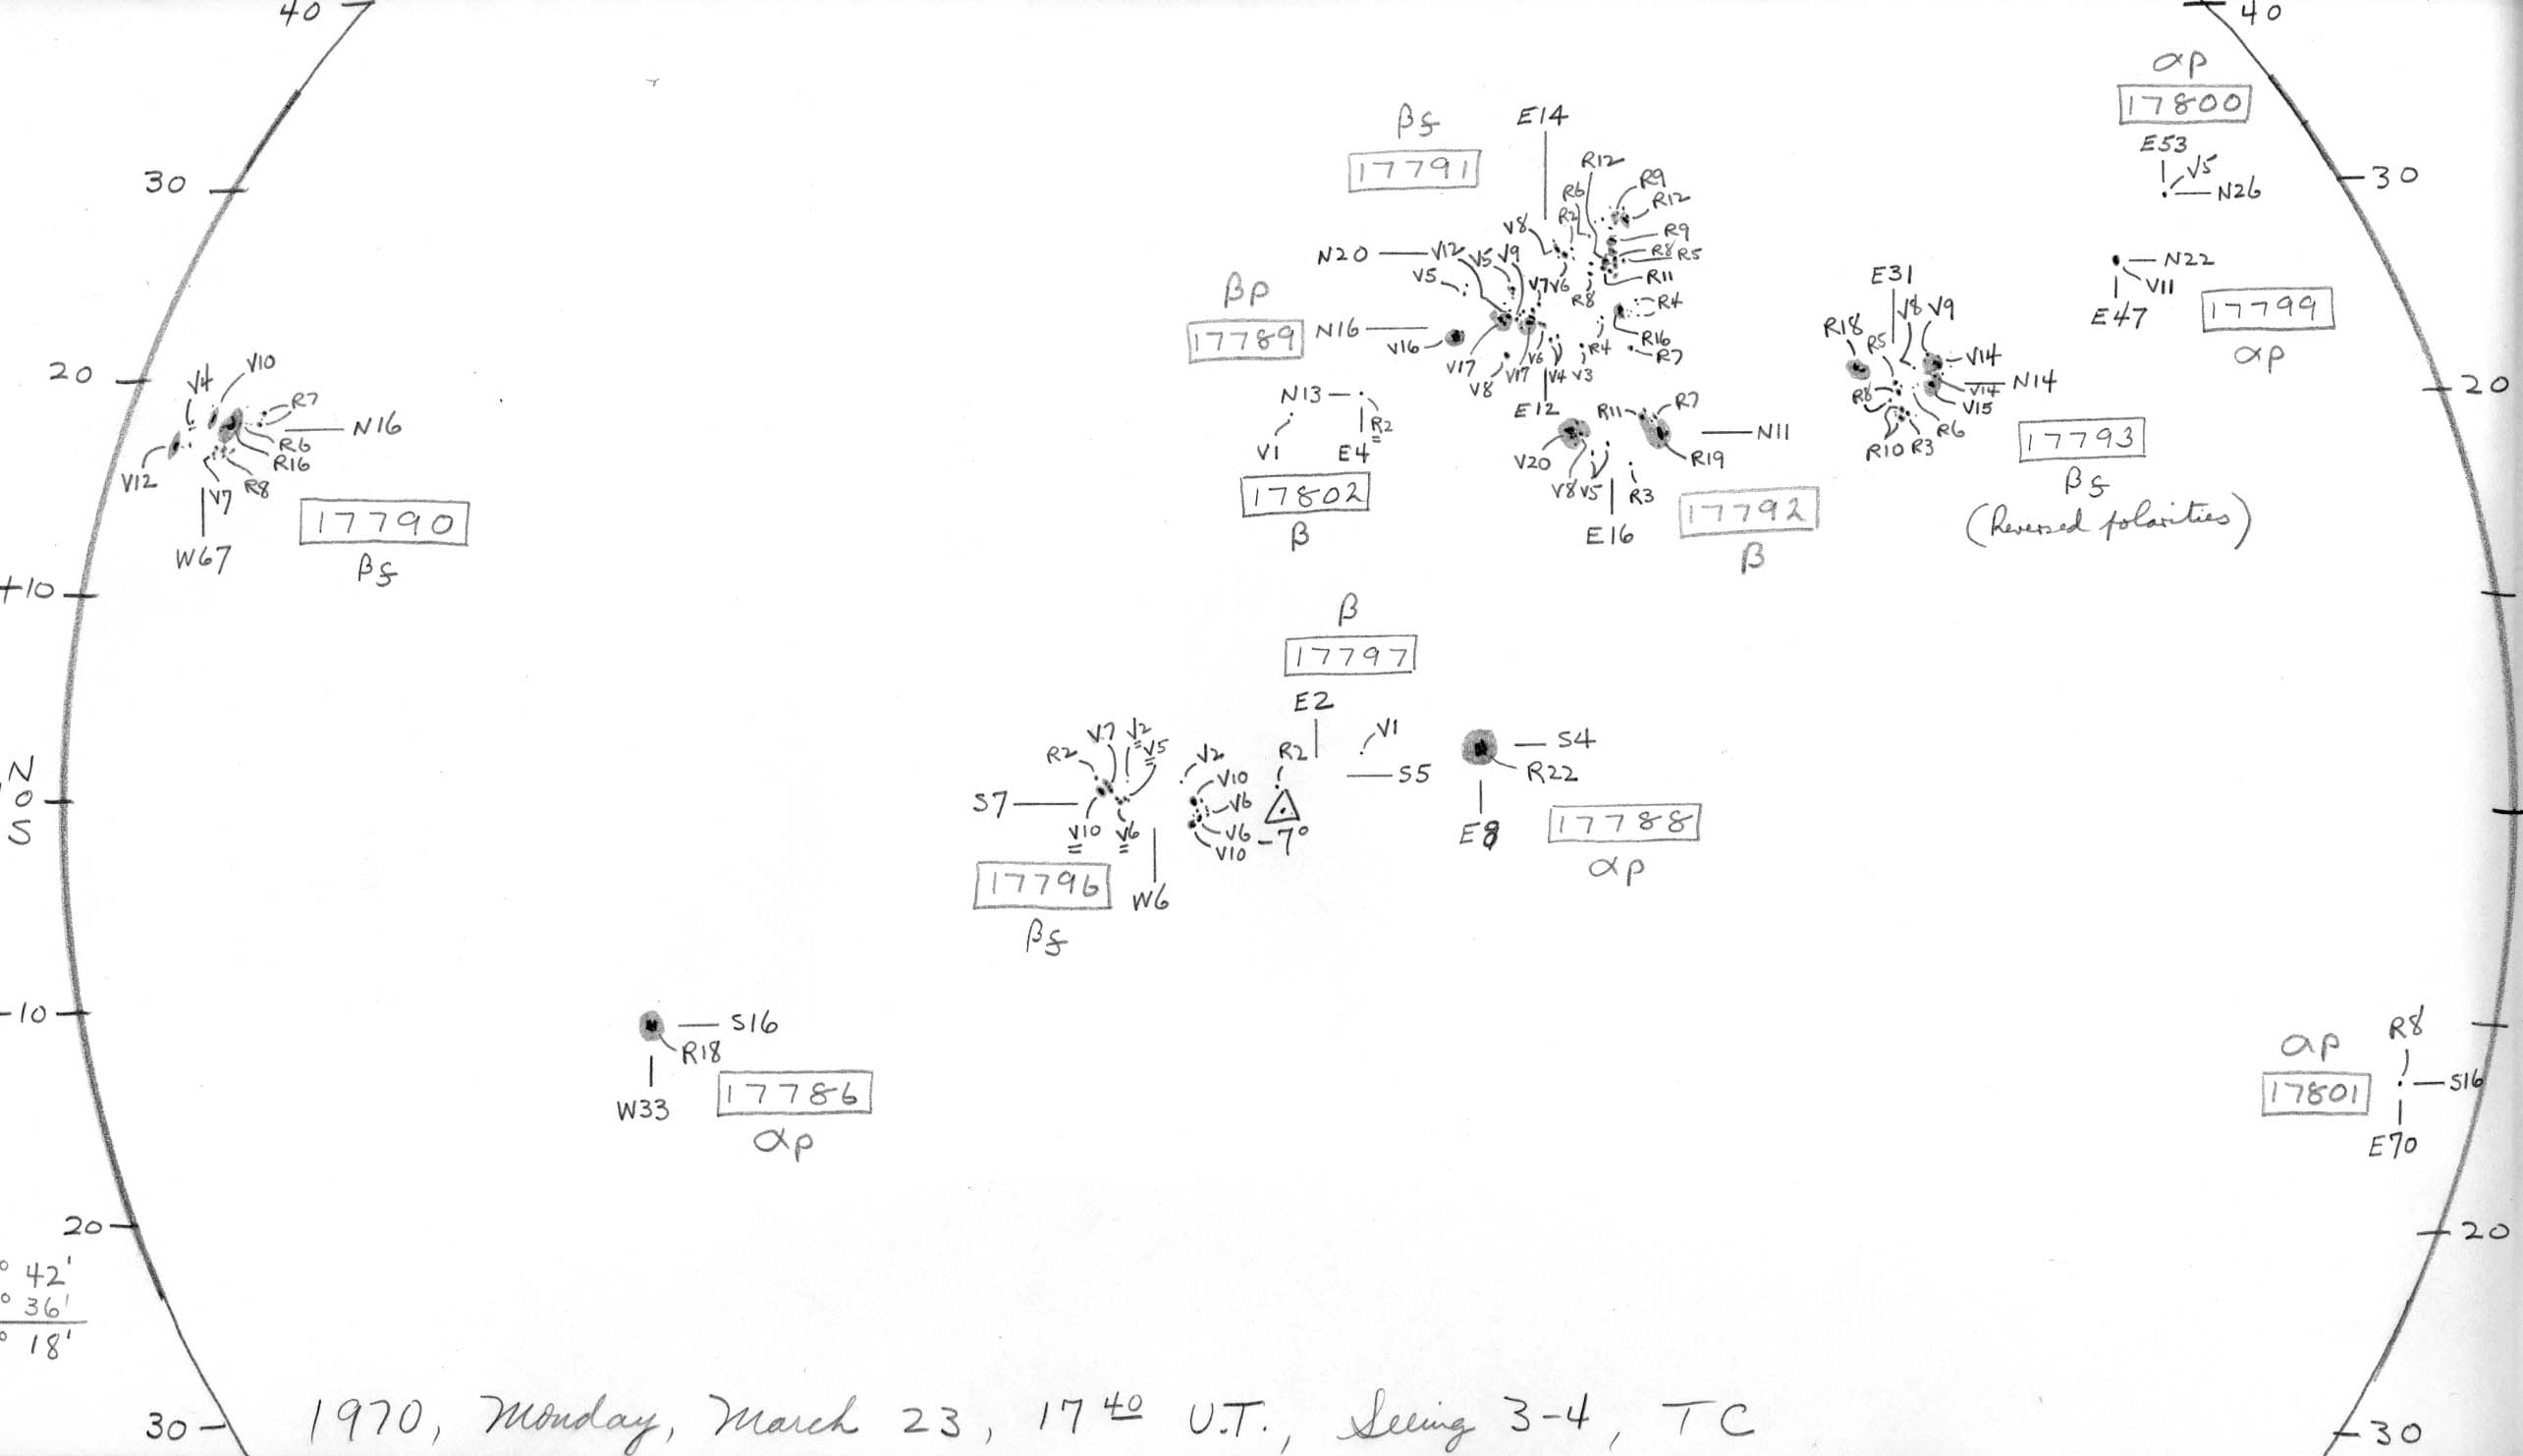 40
40
αp
17800
E53
V5
N26
30
30
βf
17791
E14
R12
R9
R6
R12
R2
V8
R9
R8
R5
R11
N20
V12
V5
V9
V5
V7
V6
R8
R4
R16
R7
βp
17789
N16
V16
V17
V8
V17
V6
V4
V3
R4
E12
N22
V11
E47
17799
αp
E31
V8
V9
R18
R5
V14
V14
N14
V15
R8
R6
R10
R3
17793
βf
(Reversed polarities)
20
20
V4
V10
R7
N16
R6
R16
V12
V7
R8
W67
17790
βf
N13
R2
V1
E4
17802
β
R11
R7
N11
V20
R19
V8
V5
R3
E16
17792
β
+10
β
17797
E2
V7
V2
V5
R2
V2
R2
V1
S4
R22
S5
V10
S7
V6
V10
V6
V6
V10
-7°
E8
17788
αp
17796
W6
βf
N
0
S
-10
S16
R18
W33
17786
αp
R8
αp
17801
S16
E70
20
20
° 42'
° 36'
° 18'
30
1970, Monday, March 23, 17 40 U.T., Seeing 3-4, TC
30